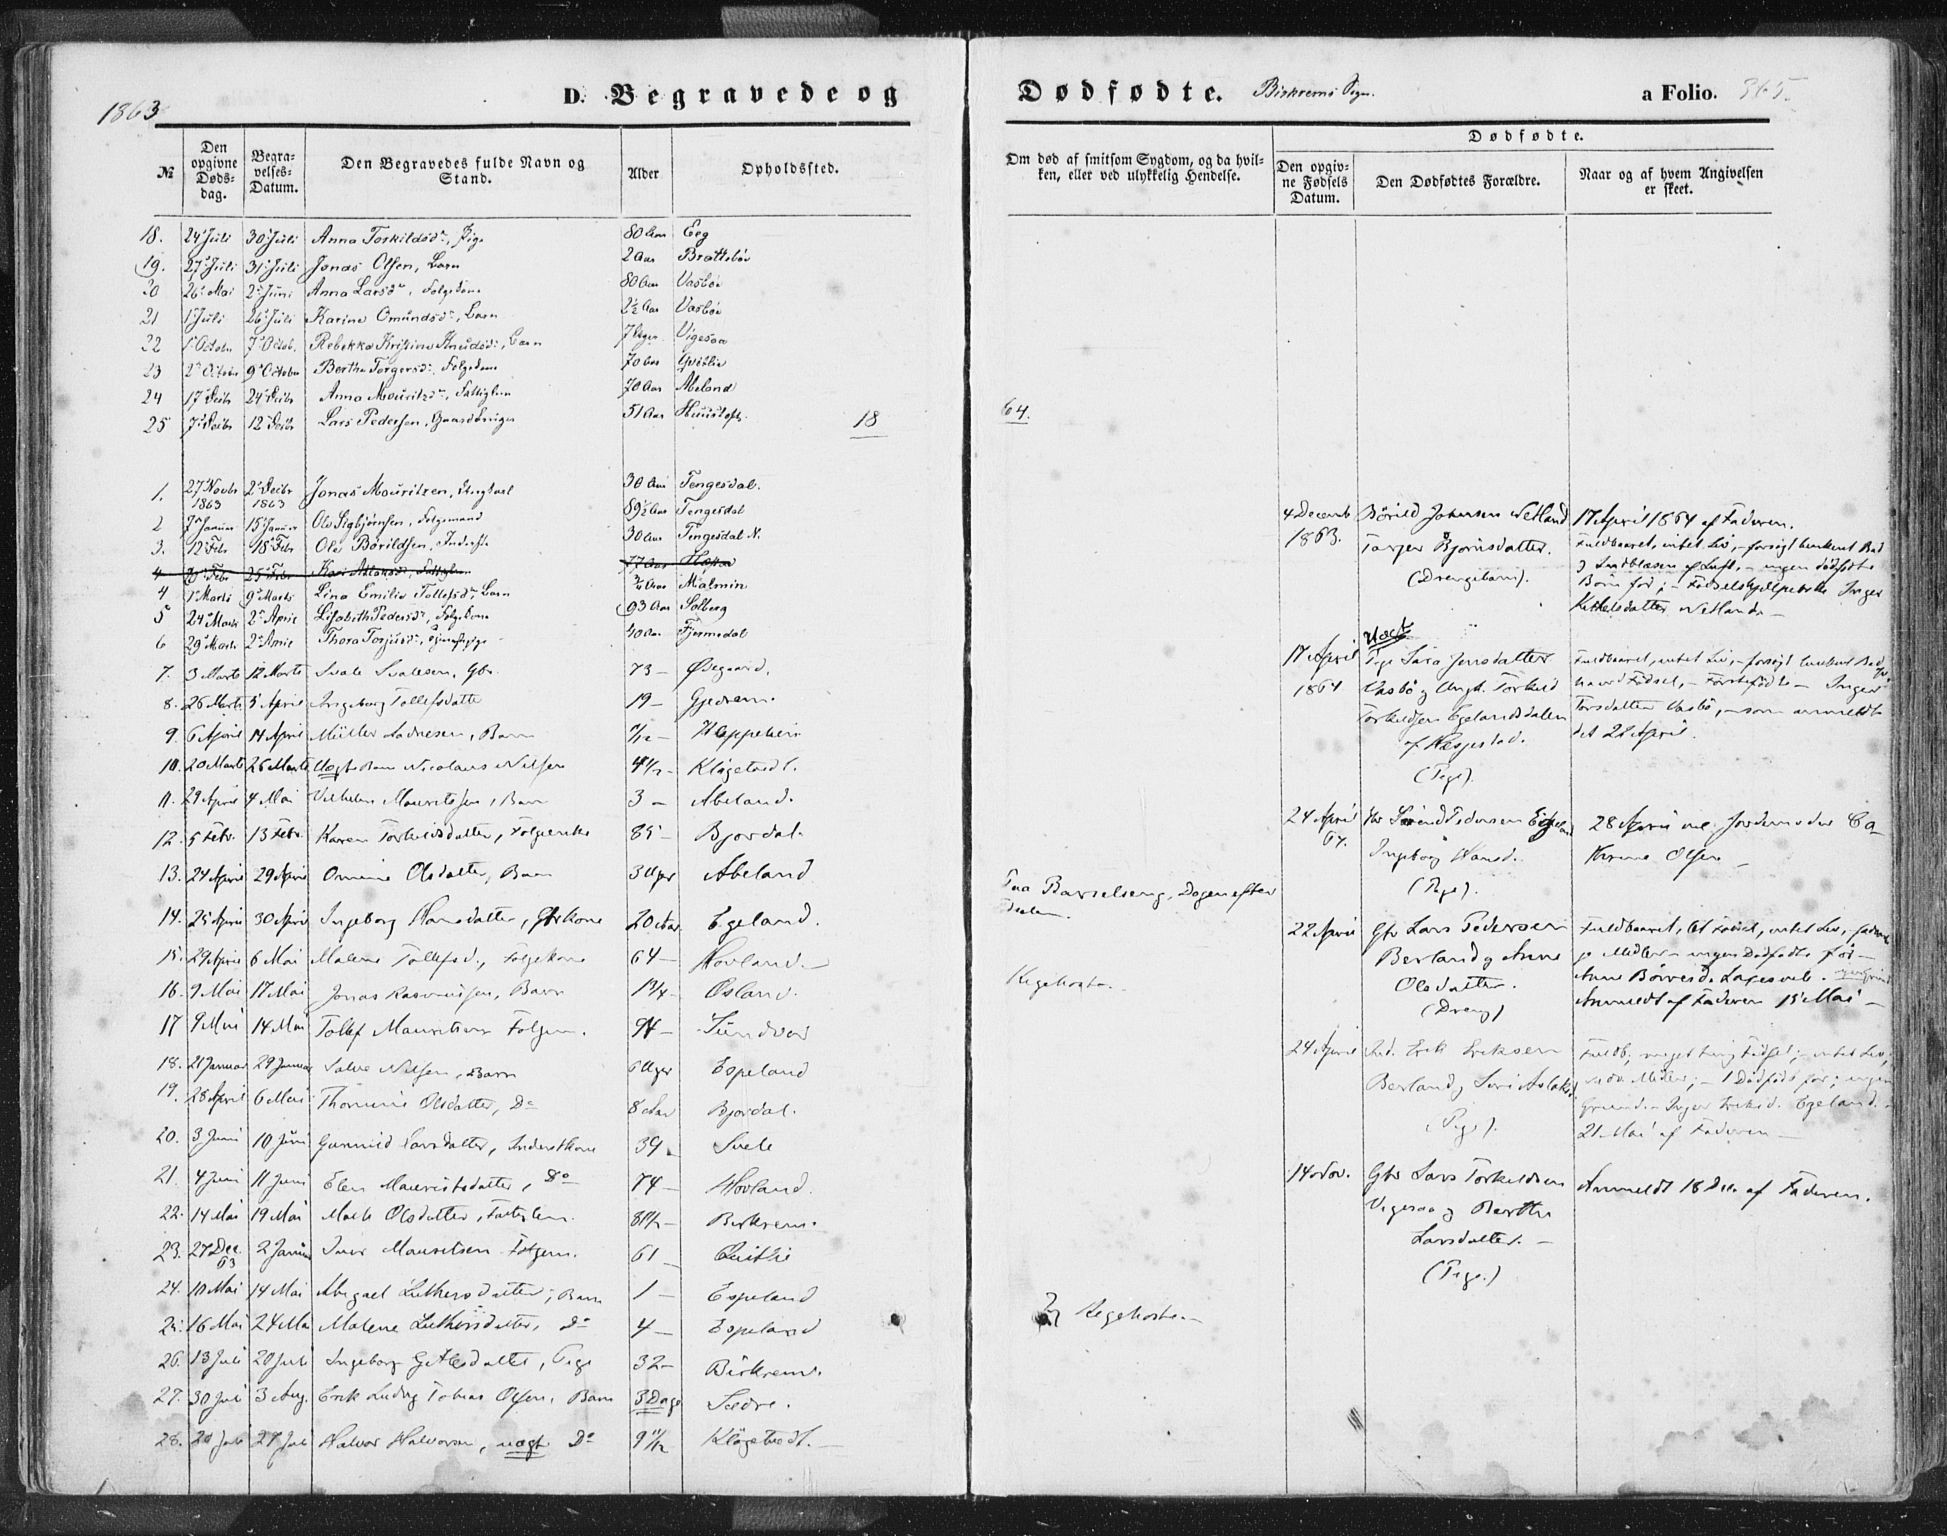 1863
D. Begravede og
Dødfødte. Birkrems Sogn.
a Folio. 365.
№
Den opgivne Døds-dag.
Begra-velses-Datum.
Den Begravedes fulde Navn og Stand.
Alder
Opholdssted.
Om død af smitsom Sygdom, og da hvil-
ken, eller ved ulykkelig Hendelse.
Dødfødte.
Den opgiv-ne Fødsels Datum.
Den Dødfødtes Forældre.
Naar og af hvem Angivelsen er skeet.
18. 24 Juli 30 Juli Anna Torkildsd., Pige 80 Aar Eeg
19. 27 Juli 31 Juli Jonas Olsen, Barn 2 Aar Brattebøe
20 26 Mai 2 Juni Anna Larsd., Folgekone 80 Aar Vasbøe
21 1 Juli 26 Juli Karine Omundsd., Barn 2½ Aar Vasbøe
22 1 Octobr 7 Octob. Rebekka Kristine Knudsd., Barn 7 Uger Vigesaa
23 2 Octobr 9 Octobr Bertha Torgersd., Folgekone 70 Aar
24 17 Decbr 24 Decbr Anna Mouritzd., Fattiglem 70 Aar Abeland
25 7 Decbr 12 Decbr Lars Pedersen, Gaardbruger 51 Aar
18
64.
1. 27 Novbr 1863 2 Decbr 1863 Jonas Mouritzen, Ungkarl 30 Aar Tengesdal.
2 7 Januar 15 Januar Ole Sigbjørnsen, Folgemand 89½ Aar Tengesdal
3. 12 Febr 18 Febr Ole Bårildsen, Inderst 30 Aar Tengesdal N.
4 25 Febr Kari Aslaksd., Fattiglem 77 Aar
4 1 Marts 9 Marts Lina Emilie Tollefsd., Barn Aar Malmin
5 24 Marts 2 April Lisabeth Pedersd., Folgekone 93 Aar Solberg
6 29 Marts 2 April Thora Torjusd., 40 Aar Fjermedal
7. 3 Marts 12 Marts Svale Svalesen, Gbr. 73 – Øvegaard.
8. 26 Marts 5 April Ingeborg Tollefsdatter 19 – Gjedrem.
9. 6 April 14 April Müller Aadnesen, Barn
10. 20 Marts 26 Marts Uægte Barn Nicolaus Nilsen Kløgetvedt.
11. 29 April 4 Mai Vilhelm Mauritssen, Barn 3 – Abeland.
12. 5 Febr. 13 Febr. Karen Torkildsdatter, Folgeenke 85 – Bjordal.
13. 24 April 29 April Omine Olsdatter, Barn 3 Uger Abeland
14. 25 April 30 April Ingeborg Hansdatter, Gbrkone 20 Aar Egeland.
Paa Barselseng, Dagen efter
15. 29 April 6 Mai Malene Tollefsd., Folgekone 64 – Hovland. –
16. 9 Mai 17 Mai Jonas Rasmussen, Barn 1¾ – Østand.
Kigehoste. –
17 9 Mai 14 Mai Tollef Mauritsen Folgem. 94 – Sundvor
18. 21 Januar 29 Januar Salve Nilsen, Barn 6 Uger Espeland
19. 28 April 6 Mai Thomine Olsdatter, Do 8 Aar Bjordal.
20. 3 Juni 10 Juni Gunnild Larsdatter, Inderstkone 39 – Svele
21. 4 Juni 11 Juni Elen Mauritsdatter, Do 74 – Hovland.
22. 14 Mai 19 Mai Marte Olsdatter, Fattiglem. Birkrem.
23. 27 Dec. 63 2 Januar Iver Mauritsen Folgem. 61 –
24. 10 Mai 14 Mai Abigael Luthersdatter, Barn 1 – Espeland
25. 16 Mai 24 Mai Malene Luthersdatter, Do 4 – Espeland
Kigehoste. –
26. 13 Juli 20 Juli Ingeborg Gitlesdatter, Pige 32 – Birkrem.
27. 30 Juli 3 Aug. Erik Ludvig Tobias Olsen, Barn 3 Dage Sædre.
28. 20 Juli 27 Juli Halvor Halvorsen, uægte Do 9 11/12 Kløgetvedt. –
4 Decemb 1863. Bårild Johnsen Netland Torger Bjørnsdatter. (Drengebarn).
17 April 1864 af Faderen.
Fuldbaaret, intet Liv, – forsøgt lunkent Bad
og Indblæsen af Luft, – ingen dødfødte
Børn før; – Fødselshjelperske Inger
Ketelsdatter Netland. –
17 April 1864 Uægte Pige Sara Jensdatter
Vasbø og Ungk. Torkild
Torkildsen Egelandsdalen
af Hægestad.
(Pige).
Fuldbaaret, intet Liv, – forsøgt lunkent Bad
haard Fødsel, – Førstefødte – Inger
Torsdatter Vasbø, – som anmeldte
det 22 April.
24 April 64. Gbr Svend Pedersen Egeland
Ingeborg Hansd.
(Pige).
28 April ved Jordemoder Ca-
thrine Olsen –
22 April Gbr Lars Pedersen
Berland og Anne
Olsdatter.
(Dreng)
Fuldbaaret, let Fødsel, intet Liv, –
Midler – ingen Dødfødte før –
Anmeldt af Faderen 15 Mai –
24 April Ind. Erik Eriksen
Berland og Siri Aslaksd.
(Pige).
Fuldb., meget tung Fødsel; – intet Liv,
Midler; – 1 Dødfødt før; ingen
Grund. – Inger Eriksd. Egeland. –
21 Mai af Faderen –
14 Nov. Gbr Lars Torkeldsen
Vigesaa og Berthe
Larsdatter. –
(Pige.)
Anmeldt 18 Dec. af Faderen.